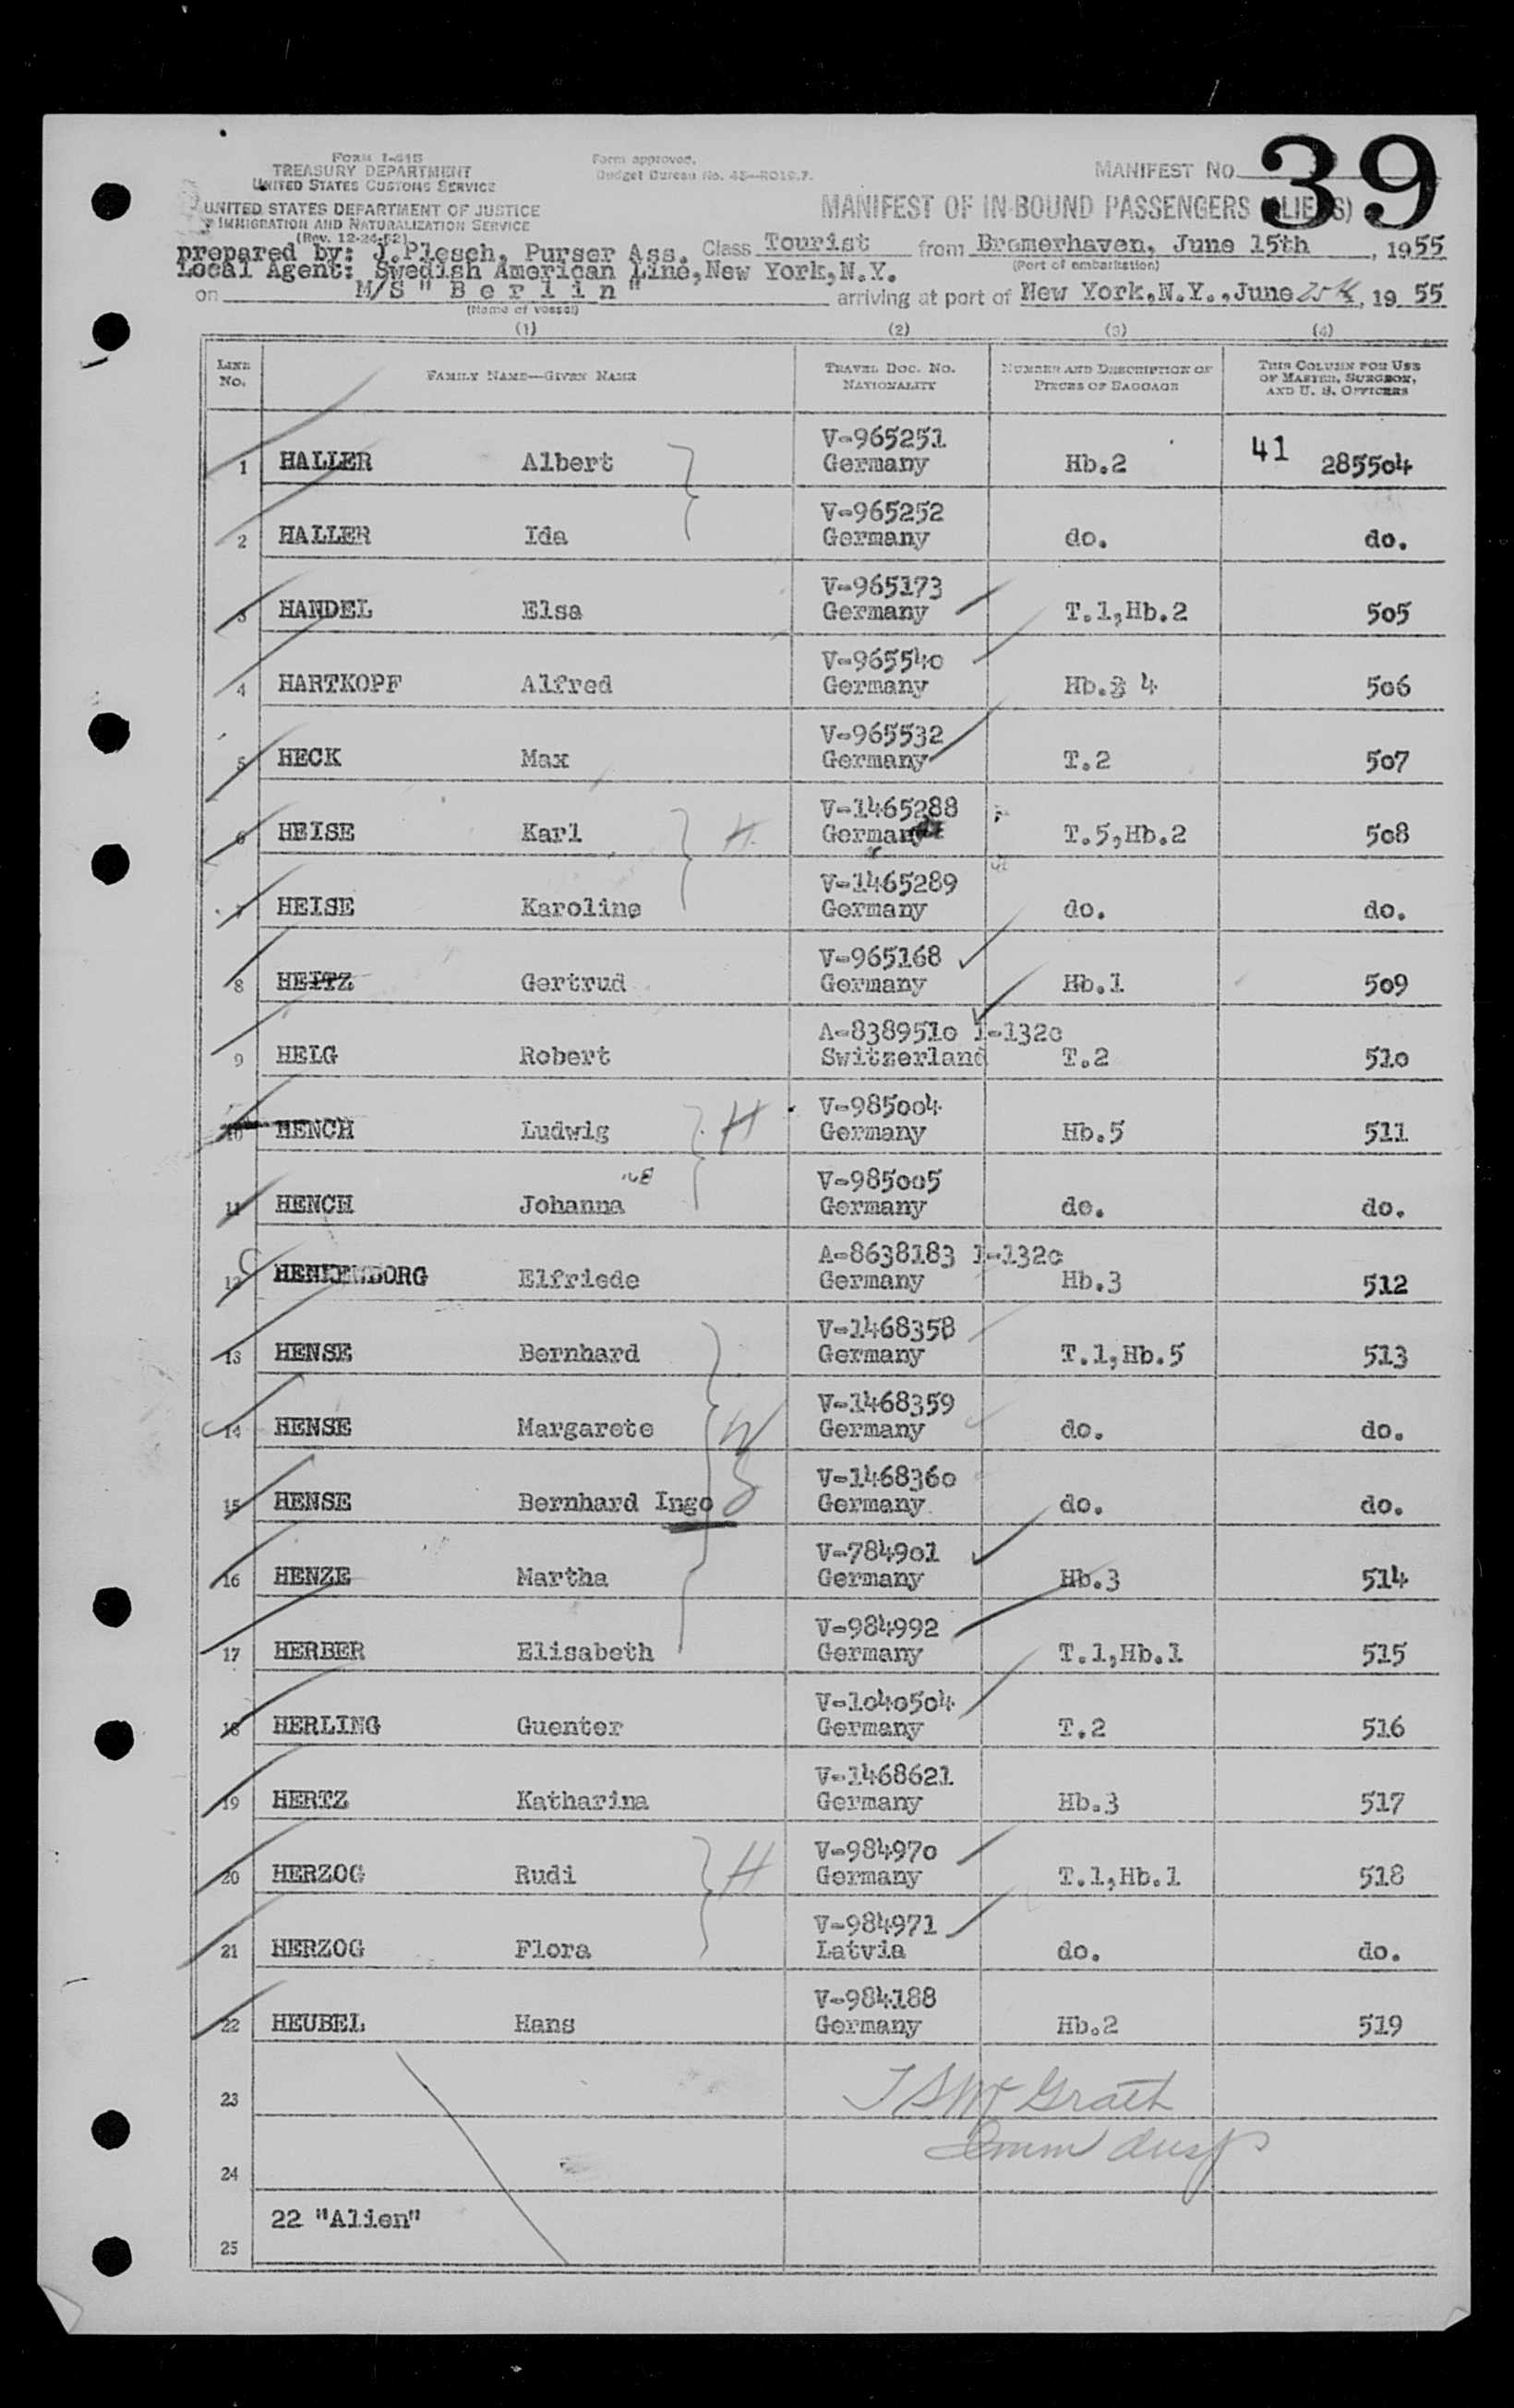 39
FORM I-415
TREASURY DEPARTMENT
UNITED STATES CUSTOMS SERVICE
Form approved.
Budget Bureau No. 43—R019.7.
MANIFEST NO.
UNITED STATES DEPARTMENT OF JUSTICE
IMMIGRATION AND NATURALIZATION SERVICE
(Rev. 12-24-52)
MANIFEST OF IN-BOUND PASSENGERS (ALIENS)
prepared by: J.Plesch, Purser Ass. Class Tourist from Bremerhaven, June 15th, 1955
(Port of embarkation)
Local Agent: Swedish American Line, New York, N.Y.
on M/S " B e r l i n " arriving at port of New York, N.Y., June 25th, 19 55
(Name of vessel)
(1) (2) (3) (4)
LINE NO. FAMILY NAME—GIVEN NAME TRAVEL DOC. NO. NATIONALITY NUMBER AND DESCRIPTION OF PIECES OF BAGGAGE THIS COLUMN FOR USE OF MASTER, SURGEON, AND U. S. OFFICERS
V-965251
1 HALLER Albert Germany Hb.2 41 285504
V-965252
2 HALLER Ida Germany do. do.
V-965173
3 HANDEL Elsa Germany T.1,Hb.2 505
V-965540
4 HARTKOPF Alfred Germany Hb. 4 506
V-965532
5 HECK Max Germany T.2 507
V-1465288
6 HEISE Karl H Germany T.5,Hb.2 508
V-1465289
7 HEISE Karoline Germany do. do.
V-965168
8 HEITZ Gertrud Germany Hb.1 509
A-8389510 1-132c
9 HELG Robert Switzerland T.2 510
V-985004
10 HENCH Ludwig H Germany Hb.5 511
V-985005
11 HENCH Johanna Germany do. do.
A-8638183 1-132c
12 Elfriede Germany Hb.3 512
V-1468358
13 HENSE Bernhard Germany T.1,Hb.5 513
V-1468359
14 HENSE Margarete Germany do. do.
V-1468360
15 HENSE Bernhard Ingo Germany do. do.
V-784901
16 HENZE Martha Germany Hb.3 514
V-984992
17 HERBER Elisabeth Germany T.1,Hb.1 515
V-1040504
18 HERLING Guenter Germany T.2 516
V-1468621
19 HERTZ Katharina Germany Hb.3 517
V-984970
20 HERZOG Rudi H Germany T.1,Hb.1 518
V-984971
21 HERZOG Flora Latvia do. do.
V-984188
22 HEUBEL Hans Germany Hb.2 519
23 McGrath
24 Imm Insp
22 "Alien"
25